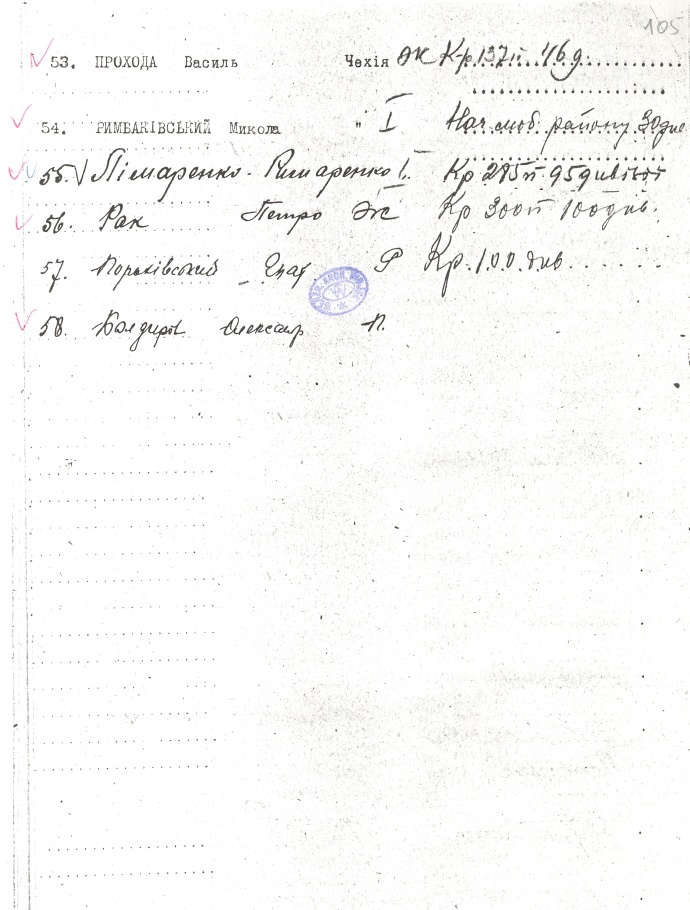 105
53. ПРОХОДА Василь Чехія Ж Кр. 137п. 46 д.
54. РИМБАКІВСЬКИЙ Микола " І Нач. моб. району 30 днів
55. Лімаренко - Римаренко І. Кр 285п. 95 дивізії
56. Рак Петро Ж Кр 300п 100 див.
57. Гнат Р Кр. 100 див
58. Болдирів Олександр П.